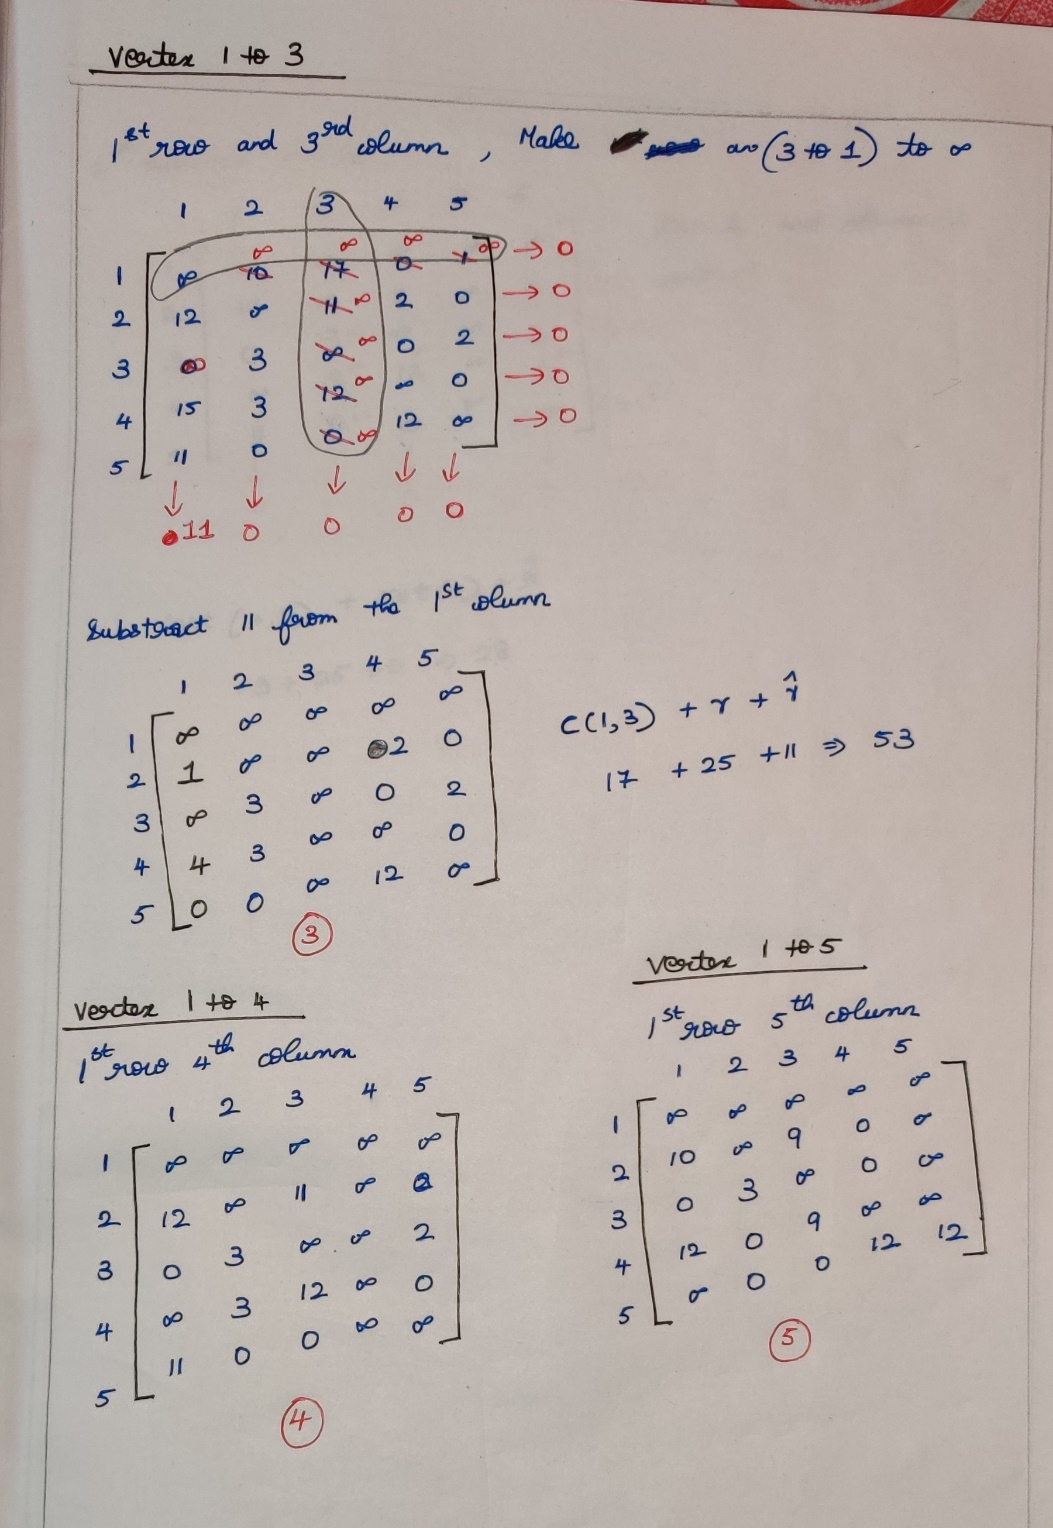 Vertex 1 to 3
1st row and 3rd column , Make as (3 to 1) to ∞
1 2 3 4 5
∞ ∞ ∞ ∞ → 0
1 ∞ 10 17 0 1
2 12 ∞ 11 ∞ 2 0 → 0
3 ∞ 3 ∞ ∞ 0 2 → 0
4 15 3 12 ∞ ∞ 0 → 0
5 11 0 0 ∞ 12 ∞ → 0
↓ ↓ ↓ ↓ ↓
11 0 0 0 0
Substract 11 from the 1st column
1 2 3 4 5
1 ∞ ∞ ∞ ∞ ∞
2 1 ∞ ∞ 2 0
3 ∞ 3 ∞ 0 2
4 4 3 ∞ ∞ 0
5 0 0 ∞ 12 ∞
3
C(1,3) + r + r̂
17 + 25 + 11 ⇒ 53
Vertex 1 to 4
1st row 4th column
1 2 3 4 5
1 ∞ ∞ ∞ ∞ ∞
2 12 ∞ 11 ∞
3 0 3 ∞ ∞ 2
4 ∞ 3 12 ∞ 0
5 11 0 0 ∞ ∞
4
Vertex 1 to 5
1st row 5th column
1 2 3 4 5
1 ∞ ∞ ∞ ∞ ∞
2 10 ∞ 9 0 ∞
3 0 3 ∞ 0 ∞
4 12 0 9 ∞ ∞
5 ∞ 0 0 12 12
5